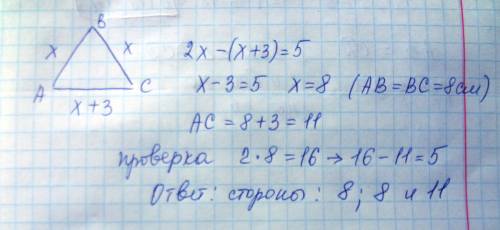 B
x x
A C
x+3
2x-(x+3)=5
x-3=5 x=8 (AB=BC=8см)
AC=8+3=11
проверка 2·8=16→16-11=5
Ответ: стороны: 8; 8 и 11